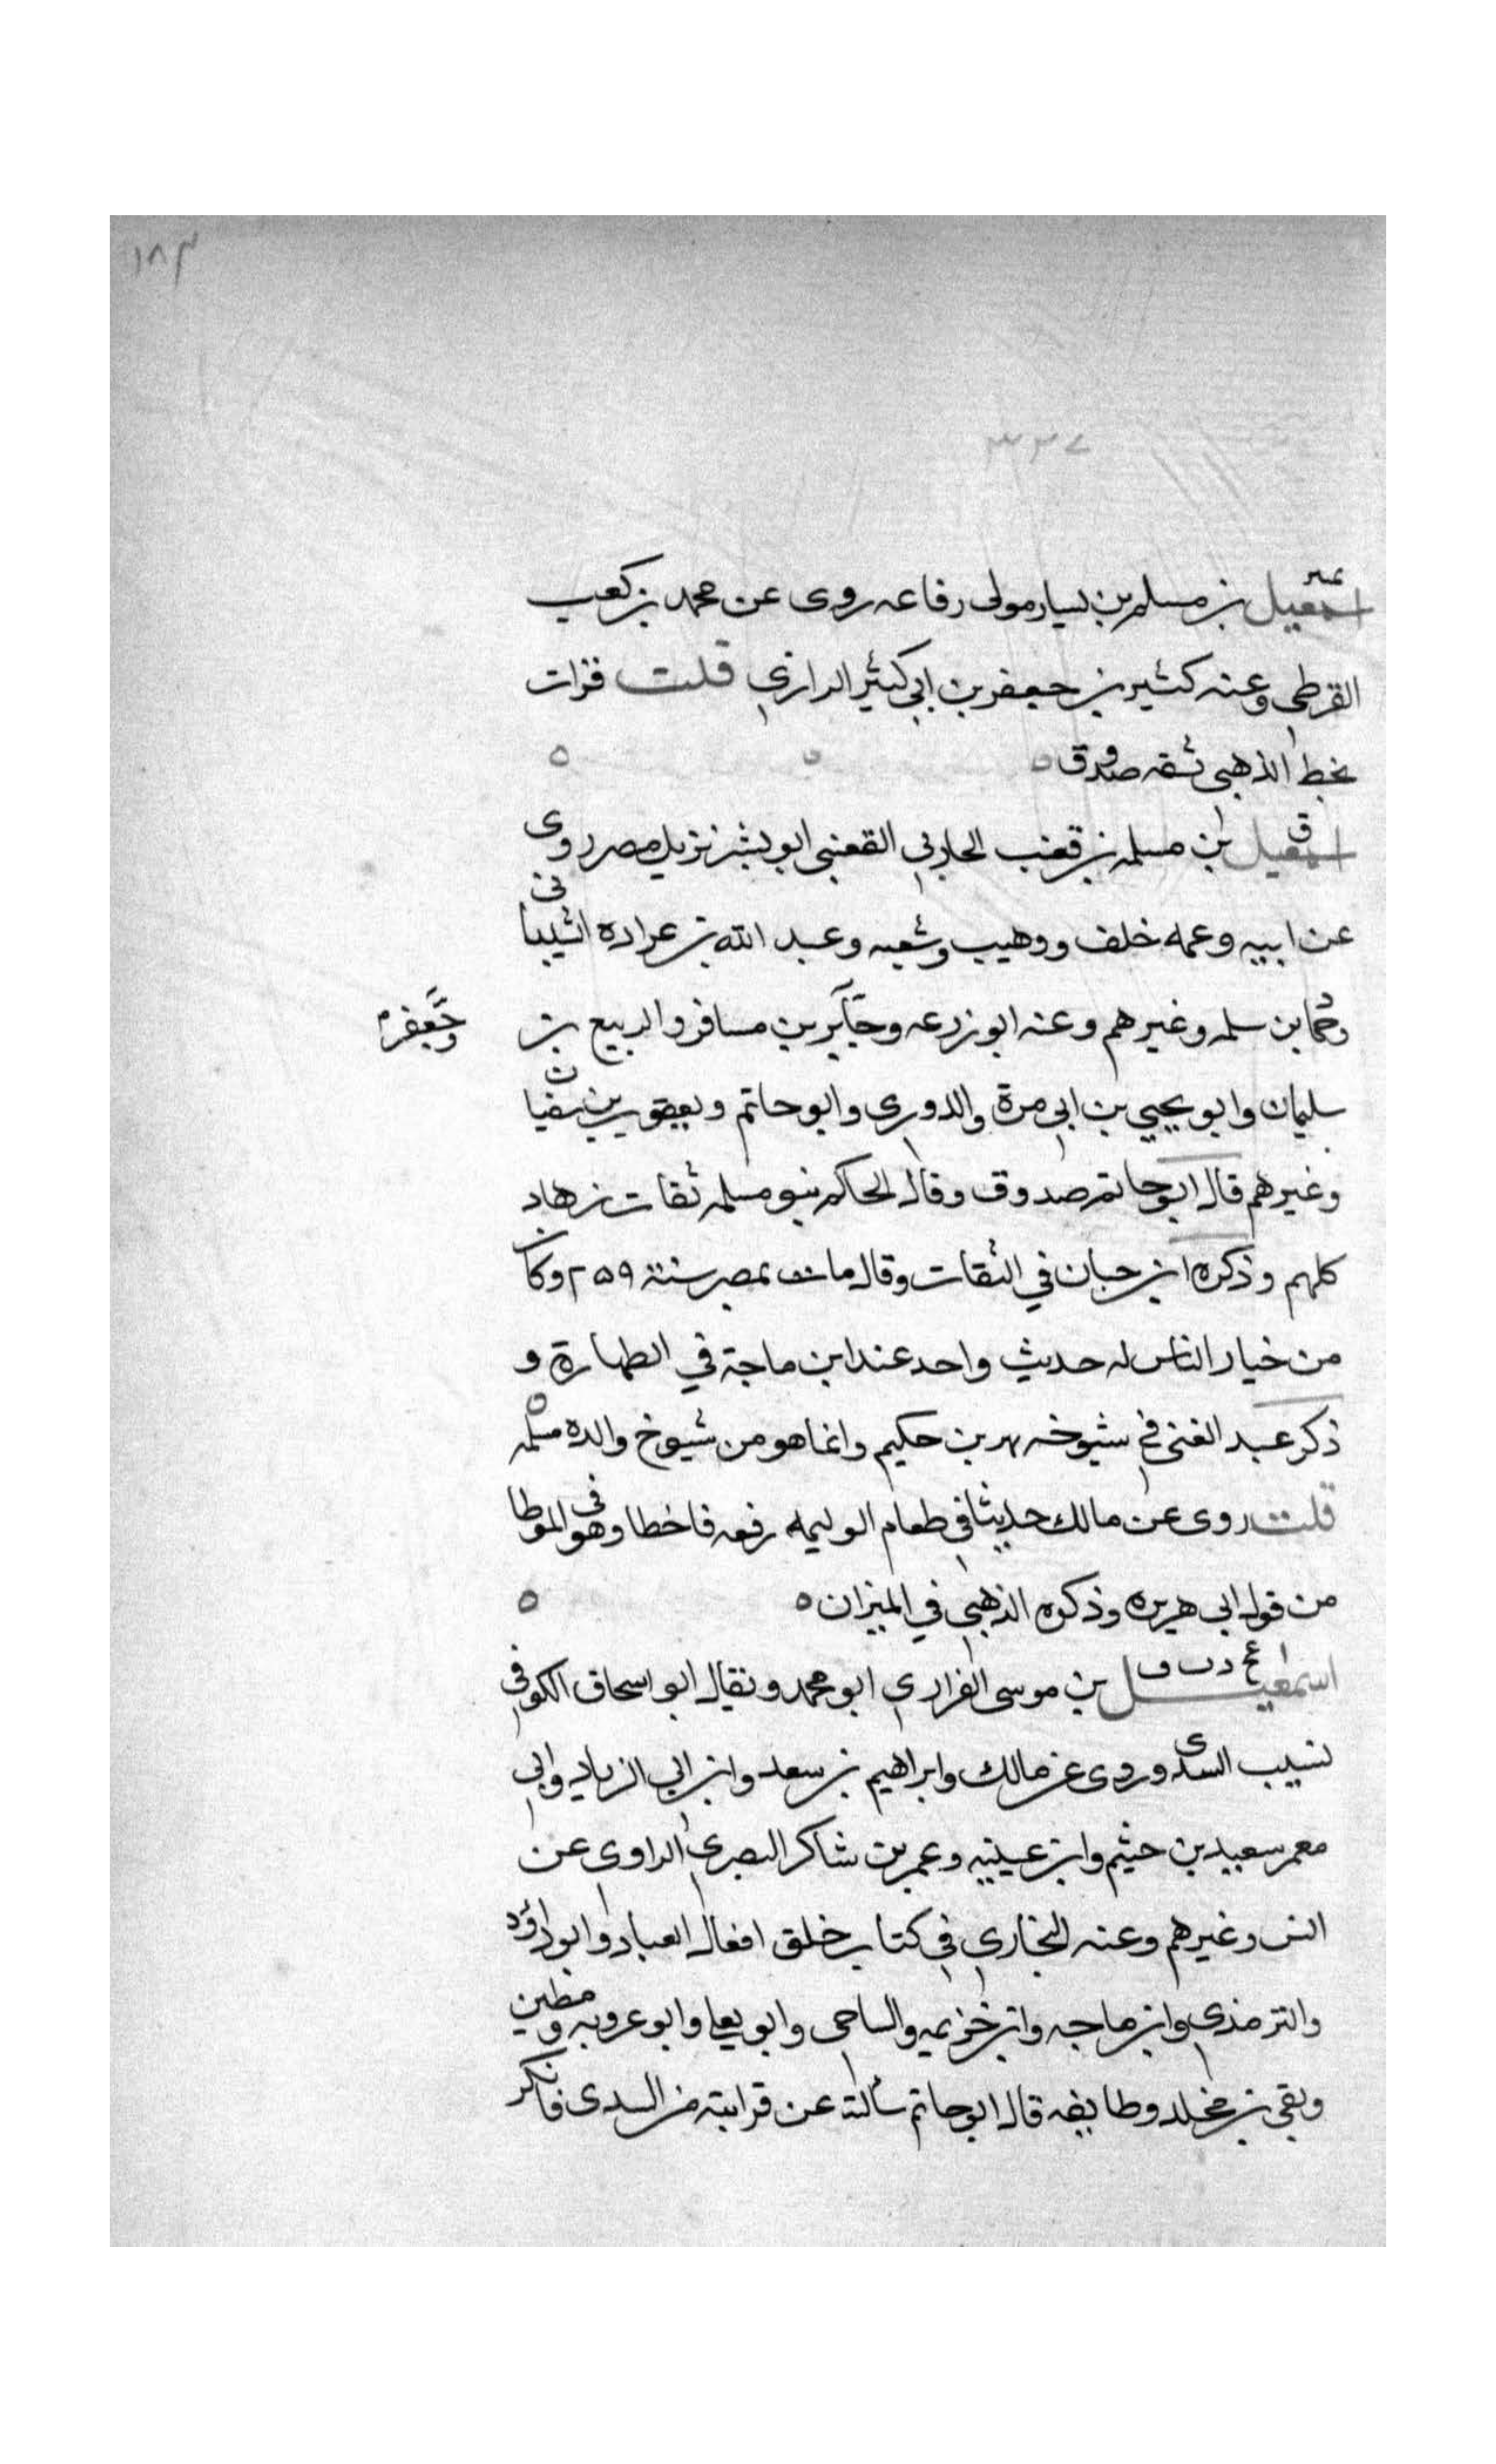 ١٨٣
٣٣٧
تمييز
اسمعيل بن مسلم بن يسار مولى رفاعه روى عن محمد بن كعب
القرظي وعنه كثير بن جعفر بن ابي كثير الدارني قلت قرات
بخط الذهبي ثقه صدوق ه ه ه
ق
اسمعيل بن مسلمه بن قعنب الحارثي القعنبي ابو بشر نزيل مصر روى
عن ابيه وعمه خلف ووهيب وشعبه وعبد الله بن عراده الشيباني
وحماد بن سلمه وغيرهم وعنه ابو زرعه وجابر بن مسافر والربيع بن
وجعفر
سليمان وابو يحيى بن ابي مرة والدوري وابو حاتم ويعقوب بن سفيان
وغيرهم قال ابو حاتم صدوق وقال الحاكم بنو مسلمه ثقات زهاد
كلهم وذكره ابن حبان في الثقات وقال مات بمصر سنة ٢٥٩ وكان
من خيار الناس له حديث واحد عند ابن ماجة في الطهارة و
ذكر عبد الغني في شيوخه بهز بن حكيم وانما هو من شيوخ والده مسلمه ه
قلت روى عن مالك حديثا في طعام الوليمه رفعه فاخطا وهو في الموطا
من قول ابي هريره وذكره الذهبي في الميزان ه ه
عخ د ت ق
اسمعيل بن موسى الفزاري ابو محمد ويقال ابو اسحاق الكوفي
نسيب السدي وروى عن مالك وابراهيم بن سعد وابن ابي الزناد وابي
معمر سعيد بن خثيم وابن عيينه وعمر بن شاكر البصري الراوي عن
انس وغيرهم وعنه البخاري في كتاب خلق افعال العباد وابو داؤد
والترمذي وابن ماجه وابن خزيمه والساجي وابو يعلى وابو عروبه ومطين
وبقي بن مخلد وطايفه قال ابو حاتم سألته عن قرابته من السدي فانكر